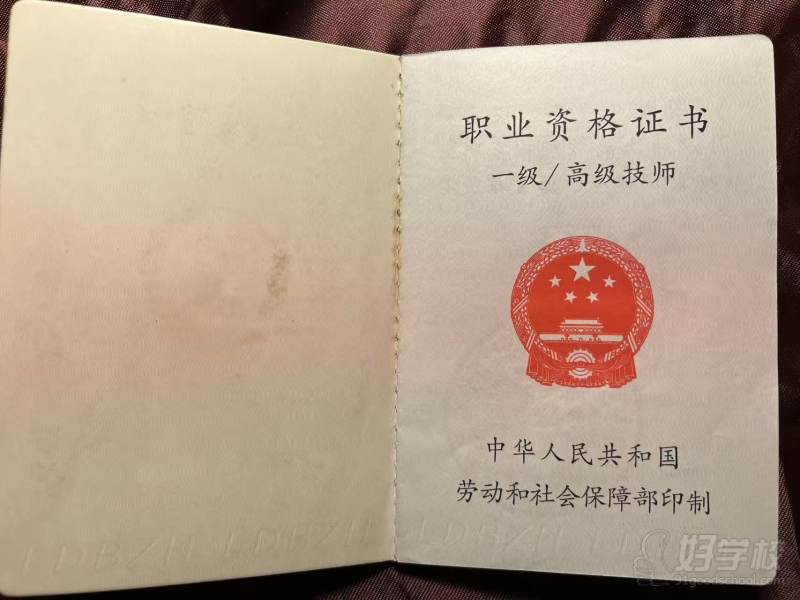 职业资格证书
一级/高级技师
中华人民共和国
劳动和社会保障部印制
LDBZH LDBZH
好学校
91goodschool.com